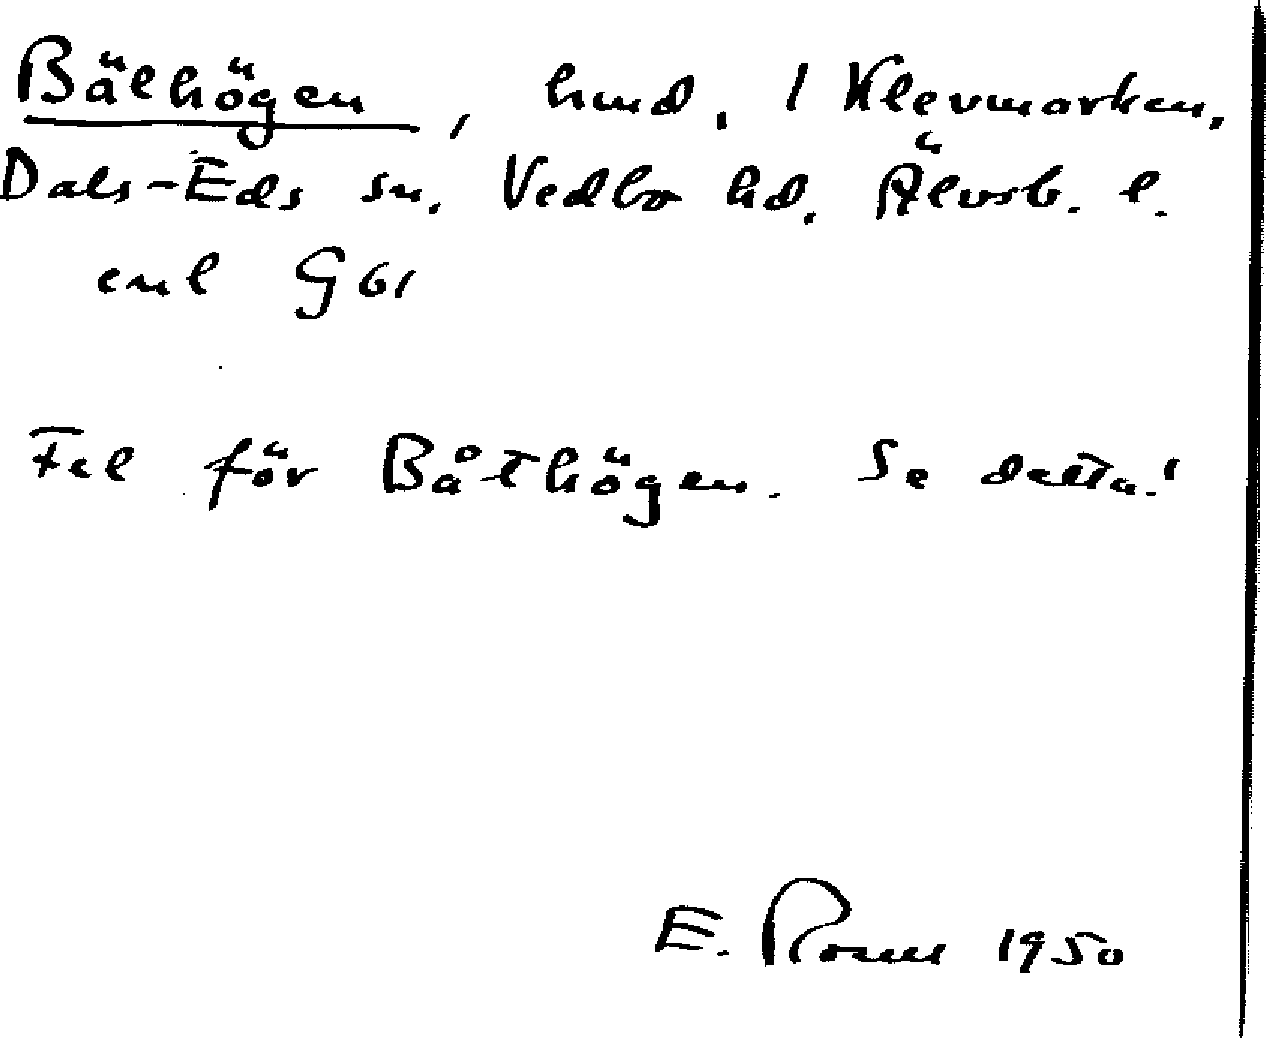 Bälhögen, hmd. 1 Klevmarken,
Dals-Eds sn. Vedbo hd. Älvsb. l.
enl G 61
Fel för Båthögen. Se detta!
E. 1950